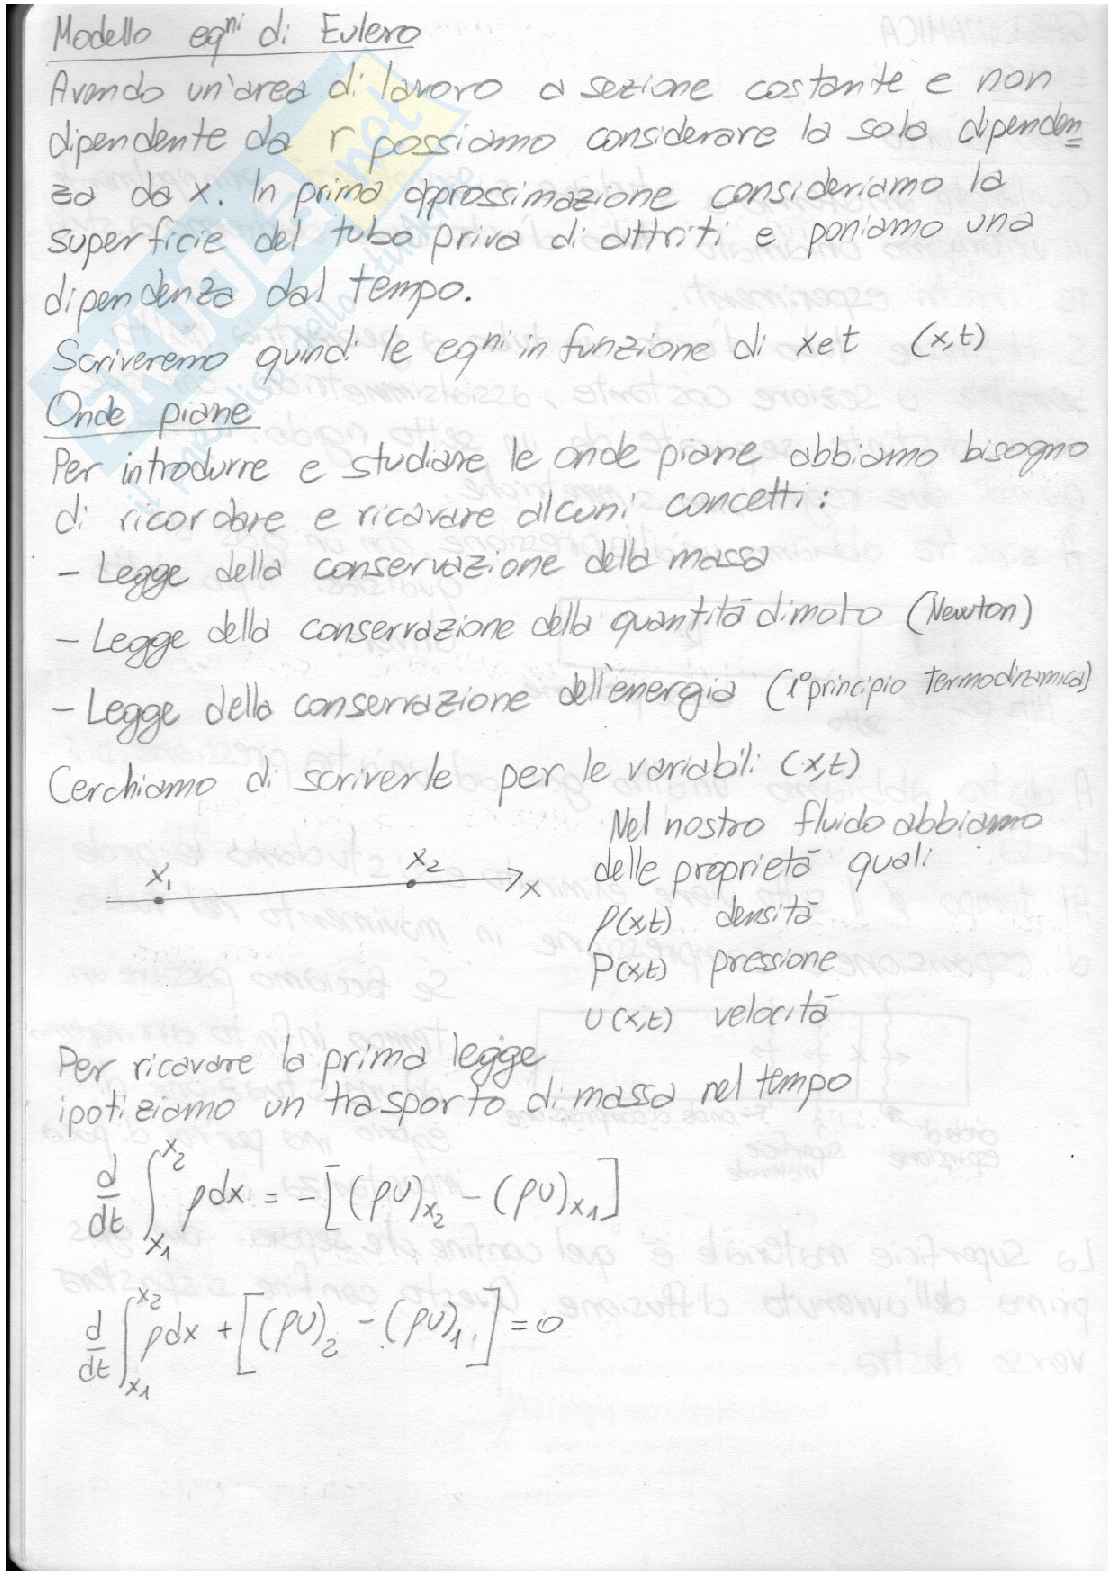 Modello eqⁿⁱ di Eulero
Avendo un'area di lavoro a sezione costante e non
dipendente da r possiamo considerare la sola dipenden=
za da x. In prima approssimazione consideriamo la
superficie del tubo priva di attriti e poniamo una
dipendenza dal tempo.
Scriveremo quindi le eqⁿⁱ in funzione di x e t (x,t)
Onde piane
Per introdurre e studiare le onde piane abbiamo bisogno
di ricordare e ricavare alcuni concetti:
- Legge della conservazione della massa
- Legge della conservazione della quantità di moto (Newton)
- Legge della conservazione dell'energia (1° principio termodinamica)
Cerchiamo di scriverle per le variabili (x,t)
Nel nostro fluido abbiamo
delle proprietà quali
x₁ x₂ x
ρ(x,t) densità
P(x,t) pressione
U(x,t) velocità
Per ricavare la prima legge
ipotiziamo un trasporto di massa nel tempo
d/dt ∫_{x₁}^{x₂} ρdx = -[(ρU)_{x₂} - (ρU)_{x₁}]
d/dt ∫_{x₁}^{x₂} ρdx + [(ρU)₂ - (ρU)₁] = 0
SKUOLA.net